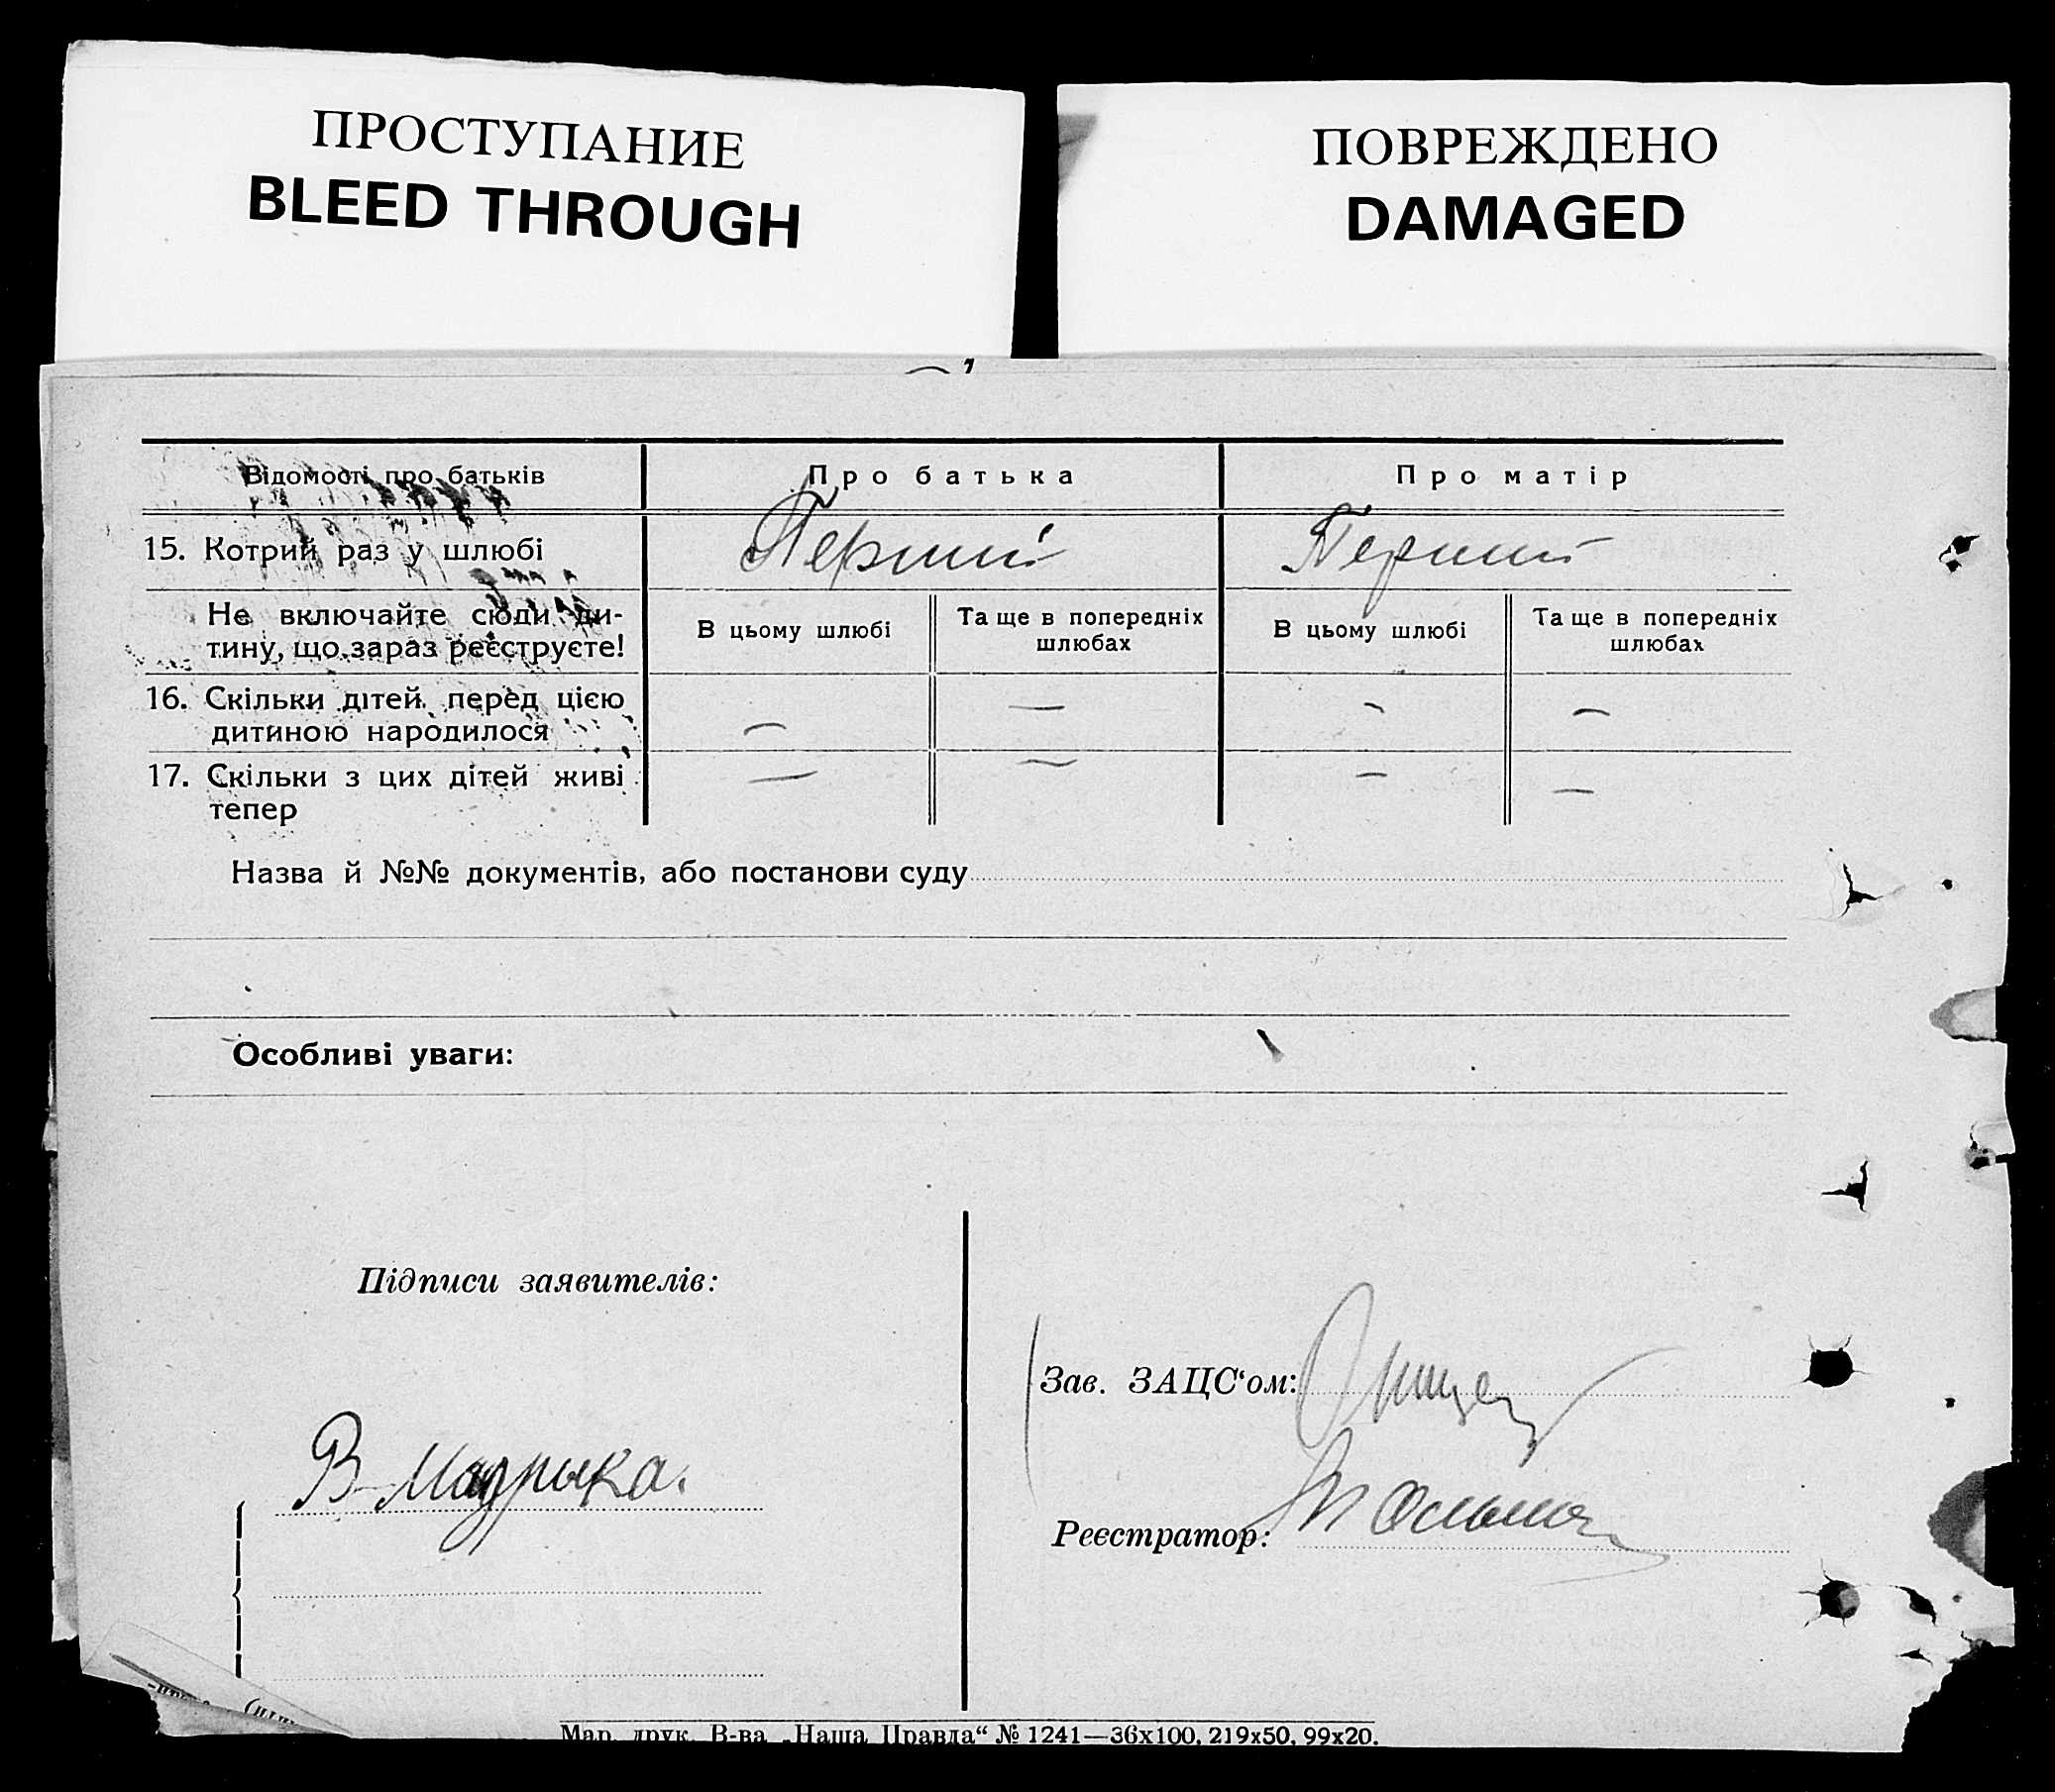 ПРОСТУПАНИЕ
BLEED THROUGH
ПОВРЕЖДЕНО
DAMAGED
Відомості про батьків
Про батька
Про матір
15. Котрий раз у шлюбі
Перший
Перший
Не включайте сюди ди-
тину, що зараз реєструєте!
В цьому шлюбі
Та ще в попередніх
шлюбах
В цьому шлюбі
Та ще в попередніх
шлюбах
16. Скільки дітей перед цією
дитиною народилося
— — — —
17. Скільки з цих дітей живі
тепер
— — — —
Назва й №№ документів, або постанови суду
Особливі уваги:
Підписи заявителів:
Зав. ЗАЦС‘ом:
В
Реєстратор:
Мар. друк. В-ва „Наша Правда“ № 1241—36х100, 219х50, 99х20.